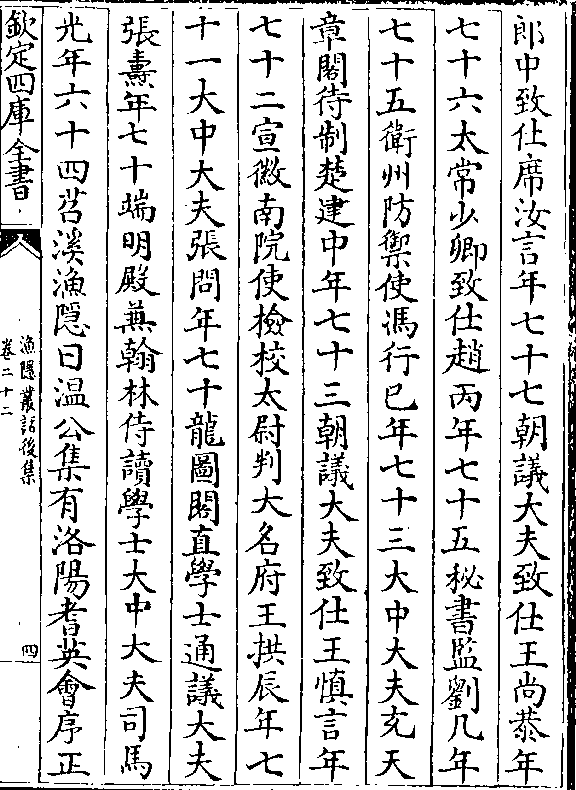 郎中致仕席汝言年七十七朝議大夫致仕王尚恭年
七十六太常少卿致仕趙丙年七十五秘書監劉几年
七十五衛州防禦使馮行已年七十三大中大夫充天
章閣待制楚建中年七十三朝議大夫致仕王慎言年
七十二宣徽南院使檢校太尉判大名府王拱辰年七
十一大中大夫張問年七十龍圖閣直學士通議大夫
張燾年七十端明殿兼翰林侍讀學士大中大夫司馬
光年六十四苕溪漁隱曰温公集有洛陽耆英會序正
欽定四庫全書
漁隱叢話後集
卷二十二
四